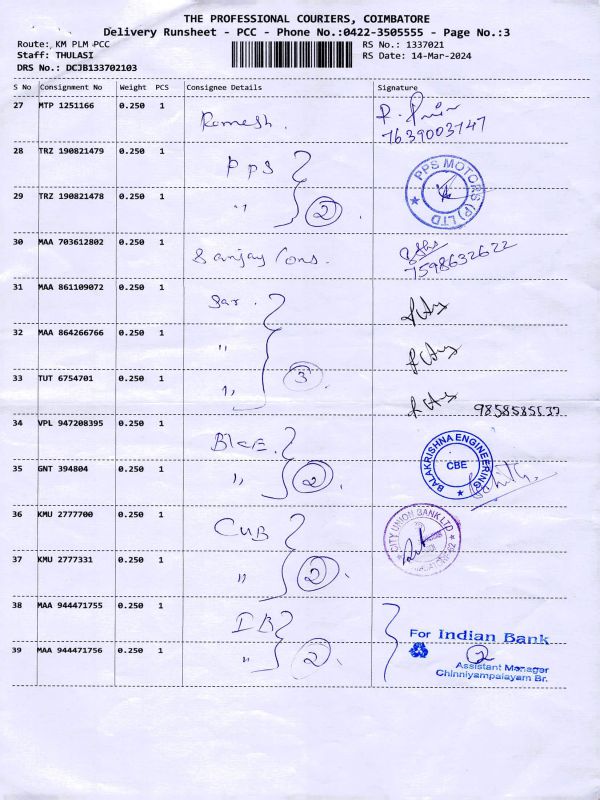 THE PROFESSIONAL COURIERS, COIMBATORE
Delivery Runsheet - PCC - Phone No.:0422-3505555 - Page No.:3
Route: KM PLM PCC
Staff: THULASI
DRS No.: DCJB133702103
RS No.: 1337021
RS Date: 14-Mar-2024
S No Consignment No Weight PCS Consignee Details Signature
27 MTP 1251166 0.250 1 Ramesh. 7639003747
28 TRZ 190821479 0.250 1 PPS
29 TRZ 190821478 0.250 1 " 2
PPS MOTORS (P) LTD
30 MAA 703612802 0.250 1 Sanjay Cons. 7598632622
31 MAA 861109072 0.250 1 Sar.
32 MAA 864266766 0.250 1 "
33 TUT 6754701 0.250 1 " 3
34 VPL 947208395 0.250 1
35 GNT 394804 0.250 1 " 2
BALAKRISHNA ENGINEERING
CBE
36 KMU 2777700 0.250 1 CUB
37 KMU 2777331 0.250 1 " 2
CITY UNION BANK LTD
38 MAA 944471755 0.250 1 IB
39 MAA 944471756 0.250 1 " 2
For Indian Bank
Assistant Manager
Chinniyampalayam Br.